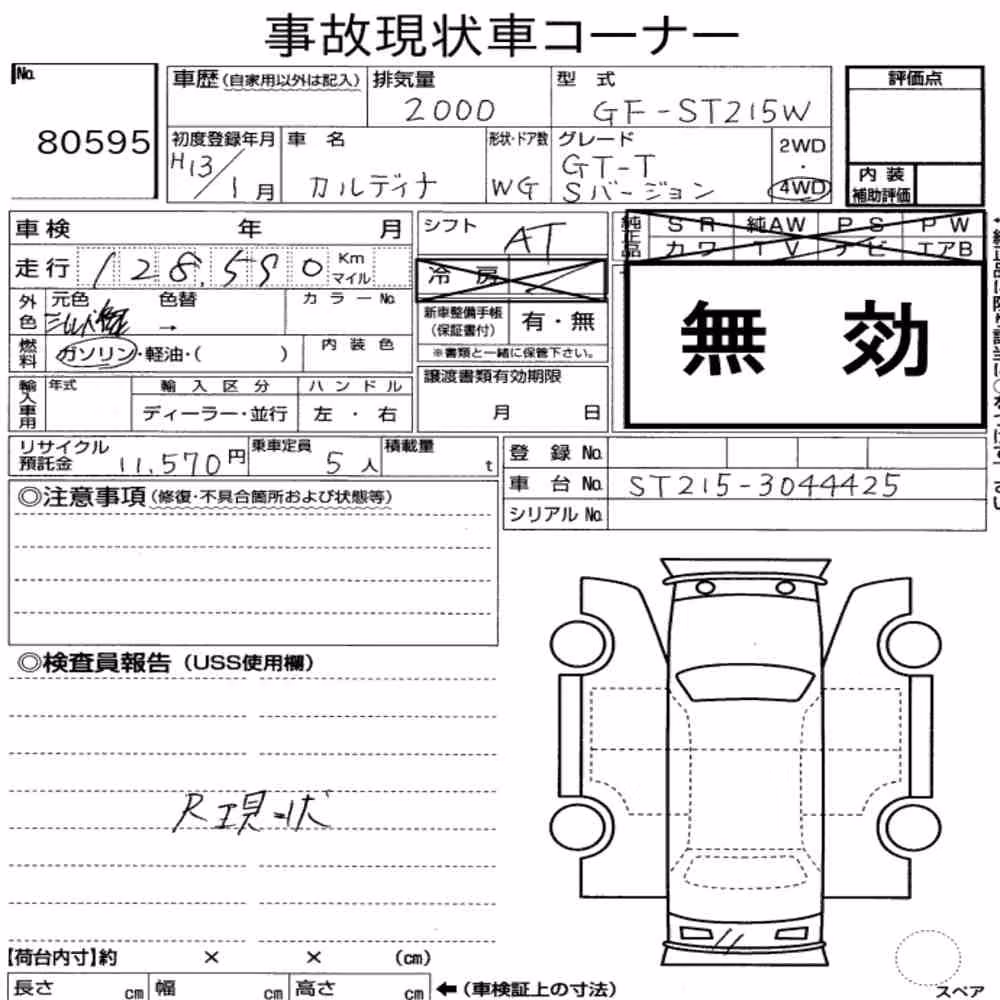 事故現状車コーナー
No.
80595
車歴 (自家用以外は記入)
排気量
2000
型 式
GF-ST215W
評価点
初度登録年月
H13/1月
車 名
カルディナ
形状・ドア数
WG
グレード
GT-T
Sバージョン
2WD
・
4WD
内 装
補助評価
車検 年 月
シフト
AT
純正品
S R 純AW P S P W
カワ T V ナビ エアB
走行 128,590 Km マイル
冷 房
外色
元色
色替
→
カラーNo.
新車整備手帳
(保証書付)
有・無
※書類と一緒に保管下さい。
無 効
燃料
ガソリン・軽油・( )
内 装 色
輸入車用
年式
輸 入 区 分
ディーラー・並行
ハ ン ド ル
左 ・ 右
譲渡書類有効期限
月 日
リサイクル
預託金
11,570円
乗車定員
5人
積載量
t
登 録 No.
車 台 No. ST215-3044425
シリアル No.
◎注意事項 (修復・不具合箇所および状態等)
◎検査員報告 (USS使用欄)
R現状
【荷台内寸】約 × × (cm)
長さ cm 幅 cm 高さ cm ←(車検証上の寸法)
スペア